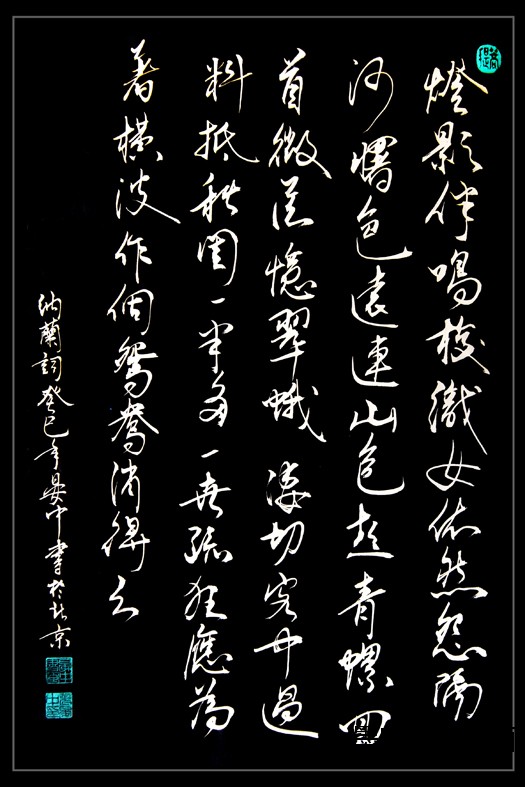 燈影伴鳴梭織女依然怨隔
河曙色遠連山色起青螺回
首微茫憶翠蛾淒切客中過
料抵秋閨一半多一世疏狂應為
著橫波作個鴛鴦消得么
納蘭詞癸巳年晏中書於北京